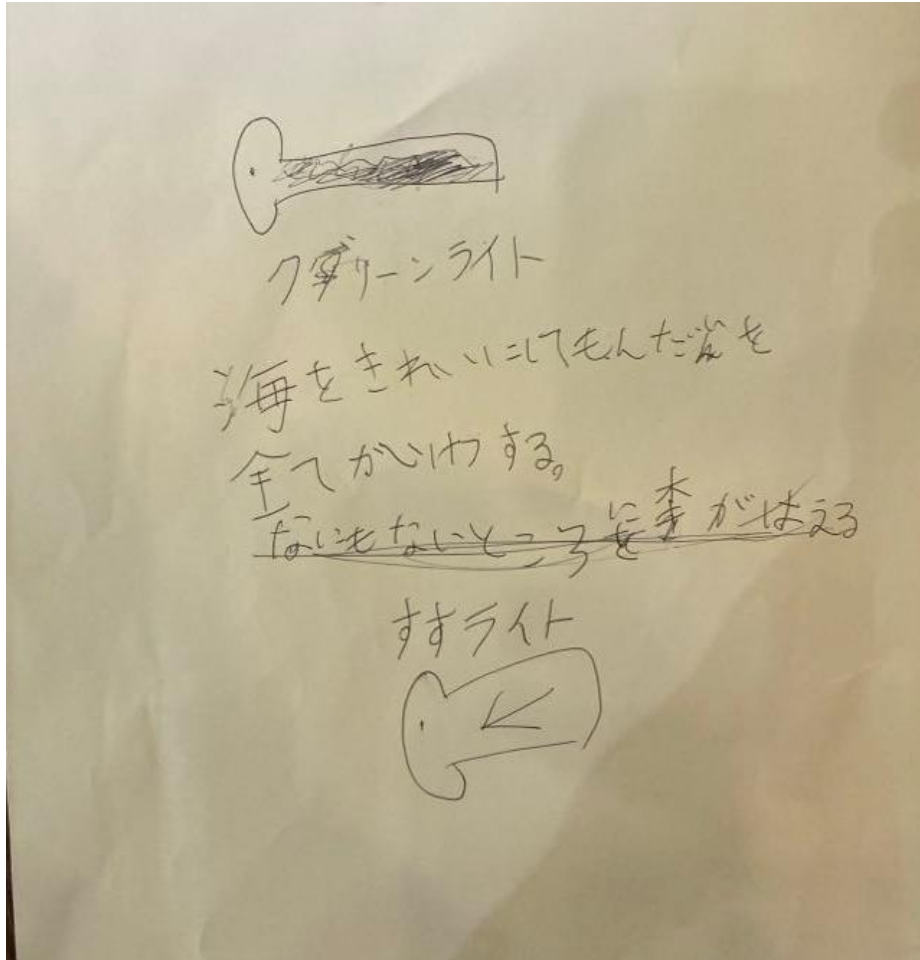 クリーンライト
海をきれいにしてもんだいを
全てかいけつする。
なにもないところに木がはえる
すすライト